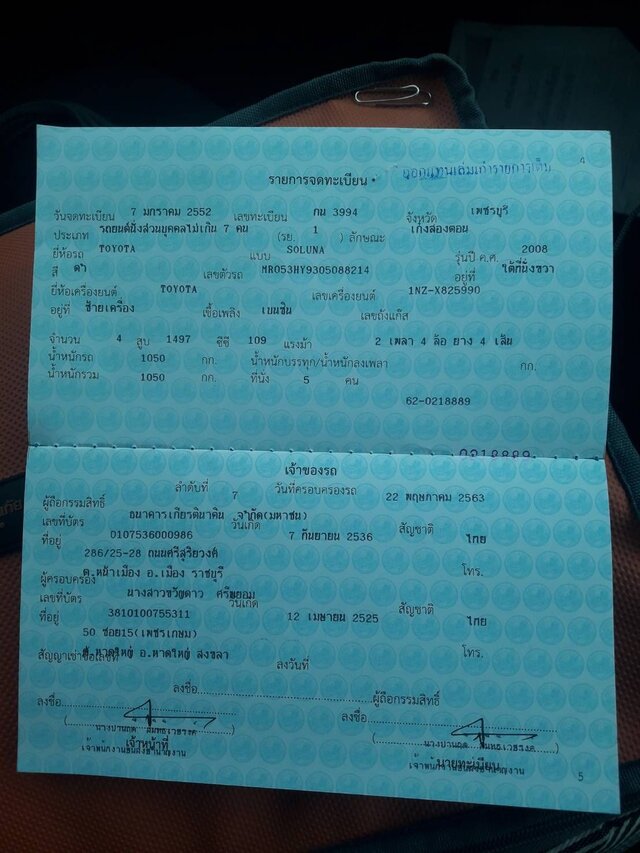 4
ออกแทนเล่มเก่ารายการเต็ม
รายการจดทะเบียน
วันจดทะเบียน 7 มกราคม 2552 เลขทะเบียน กน 3994 จังหวัด เพชรบุรี
ประเภท รถยนต์นั่งส่วนบุคคลไม่เกิน 7 คน (รย. 1 ) ลักษณะ เก๋งสองตอน
ยี่ห้อรถ TOYOTA แบบ SOLUNA รุ่นปี ค.ศ. 2008
สี ดำ เลขตัวรถ MR053HY9305088214 อยู่ที่ ใต้ที่นั่งขวา
ยี่ห้อเครื่องยนต์ TOYOTA เลขเครื่องยนต์ 1NZ-X825990
อยู่ที่ ซ้ายเครื่อง เชื้อเพลิง เบนซิน เลขถังแก๊ส
จำนวน 4 สูบ 1497 ซีซี 109 แรงม้า 2 เพลา 4 ล้อ ยาง 4 เส้น
น้ำหนักรถ 1050 กก. น้ำหนักบรรทุก/น้ำหนักลงเพลา กก.
น้ำหนักรวม 1050 กก. ที่นั่ง 5 คน
62-0218889
0218889
เจ้าของรถ
ลำดับที่ 7 วันที่ครอบครองรถ 22 พฤษภาคม 2563
ผู้ถือกรรมสิทธิ์ ธนาคารเกียรตินาคิน จำกัด(มหาชน)
เลขที่บัตร 0107536000986 วันเกิด 7 กันยายน 2536 สัญชาติ ไทย
ที่อยู่ 286/25-28 ถนนศรีสุริยวงศ์
ต.หน้าเมือง อ.เมือง ราชบุรี โทร.
ผู้ครอบครอง นางสาวขวัญดาว ศรีขยอม
เลขที่บัตร 3810100755311 วันเกิด 12 เมษายน 2525 สัญชาติ ไทย
ที่อยู่ 50 ซอย15(เพชรเกษม)
ต.หาดใหญ่ อ.หาดใหญ่ สงขลา โทร.
สัญญาเช่าซื้อเลขที่ ลงวันที่
ลงชื่อ ผู้ถือกรรมสิทธิ์
ลงชื่อ ลงชื่อ
เจ้าหน้าที่ นายทะเบียน
5